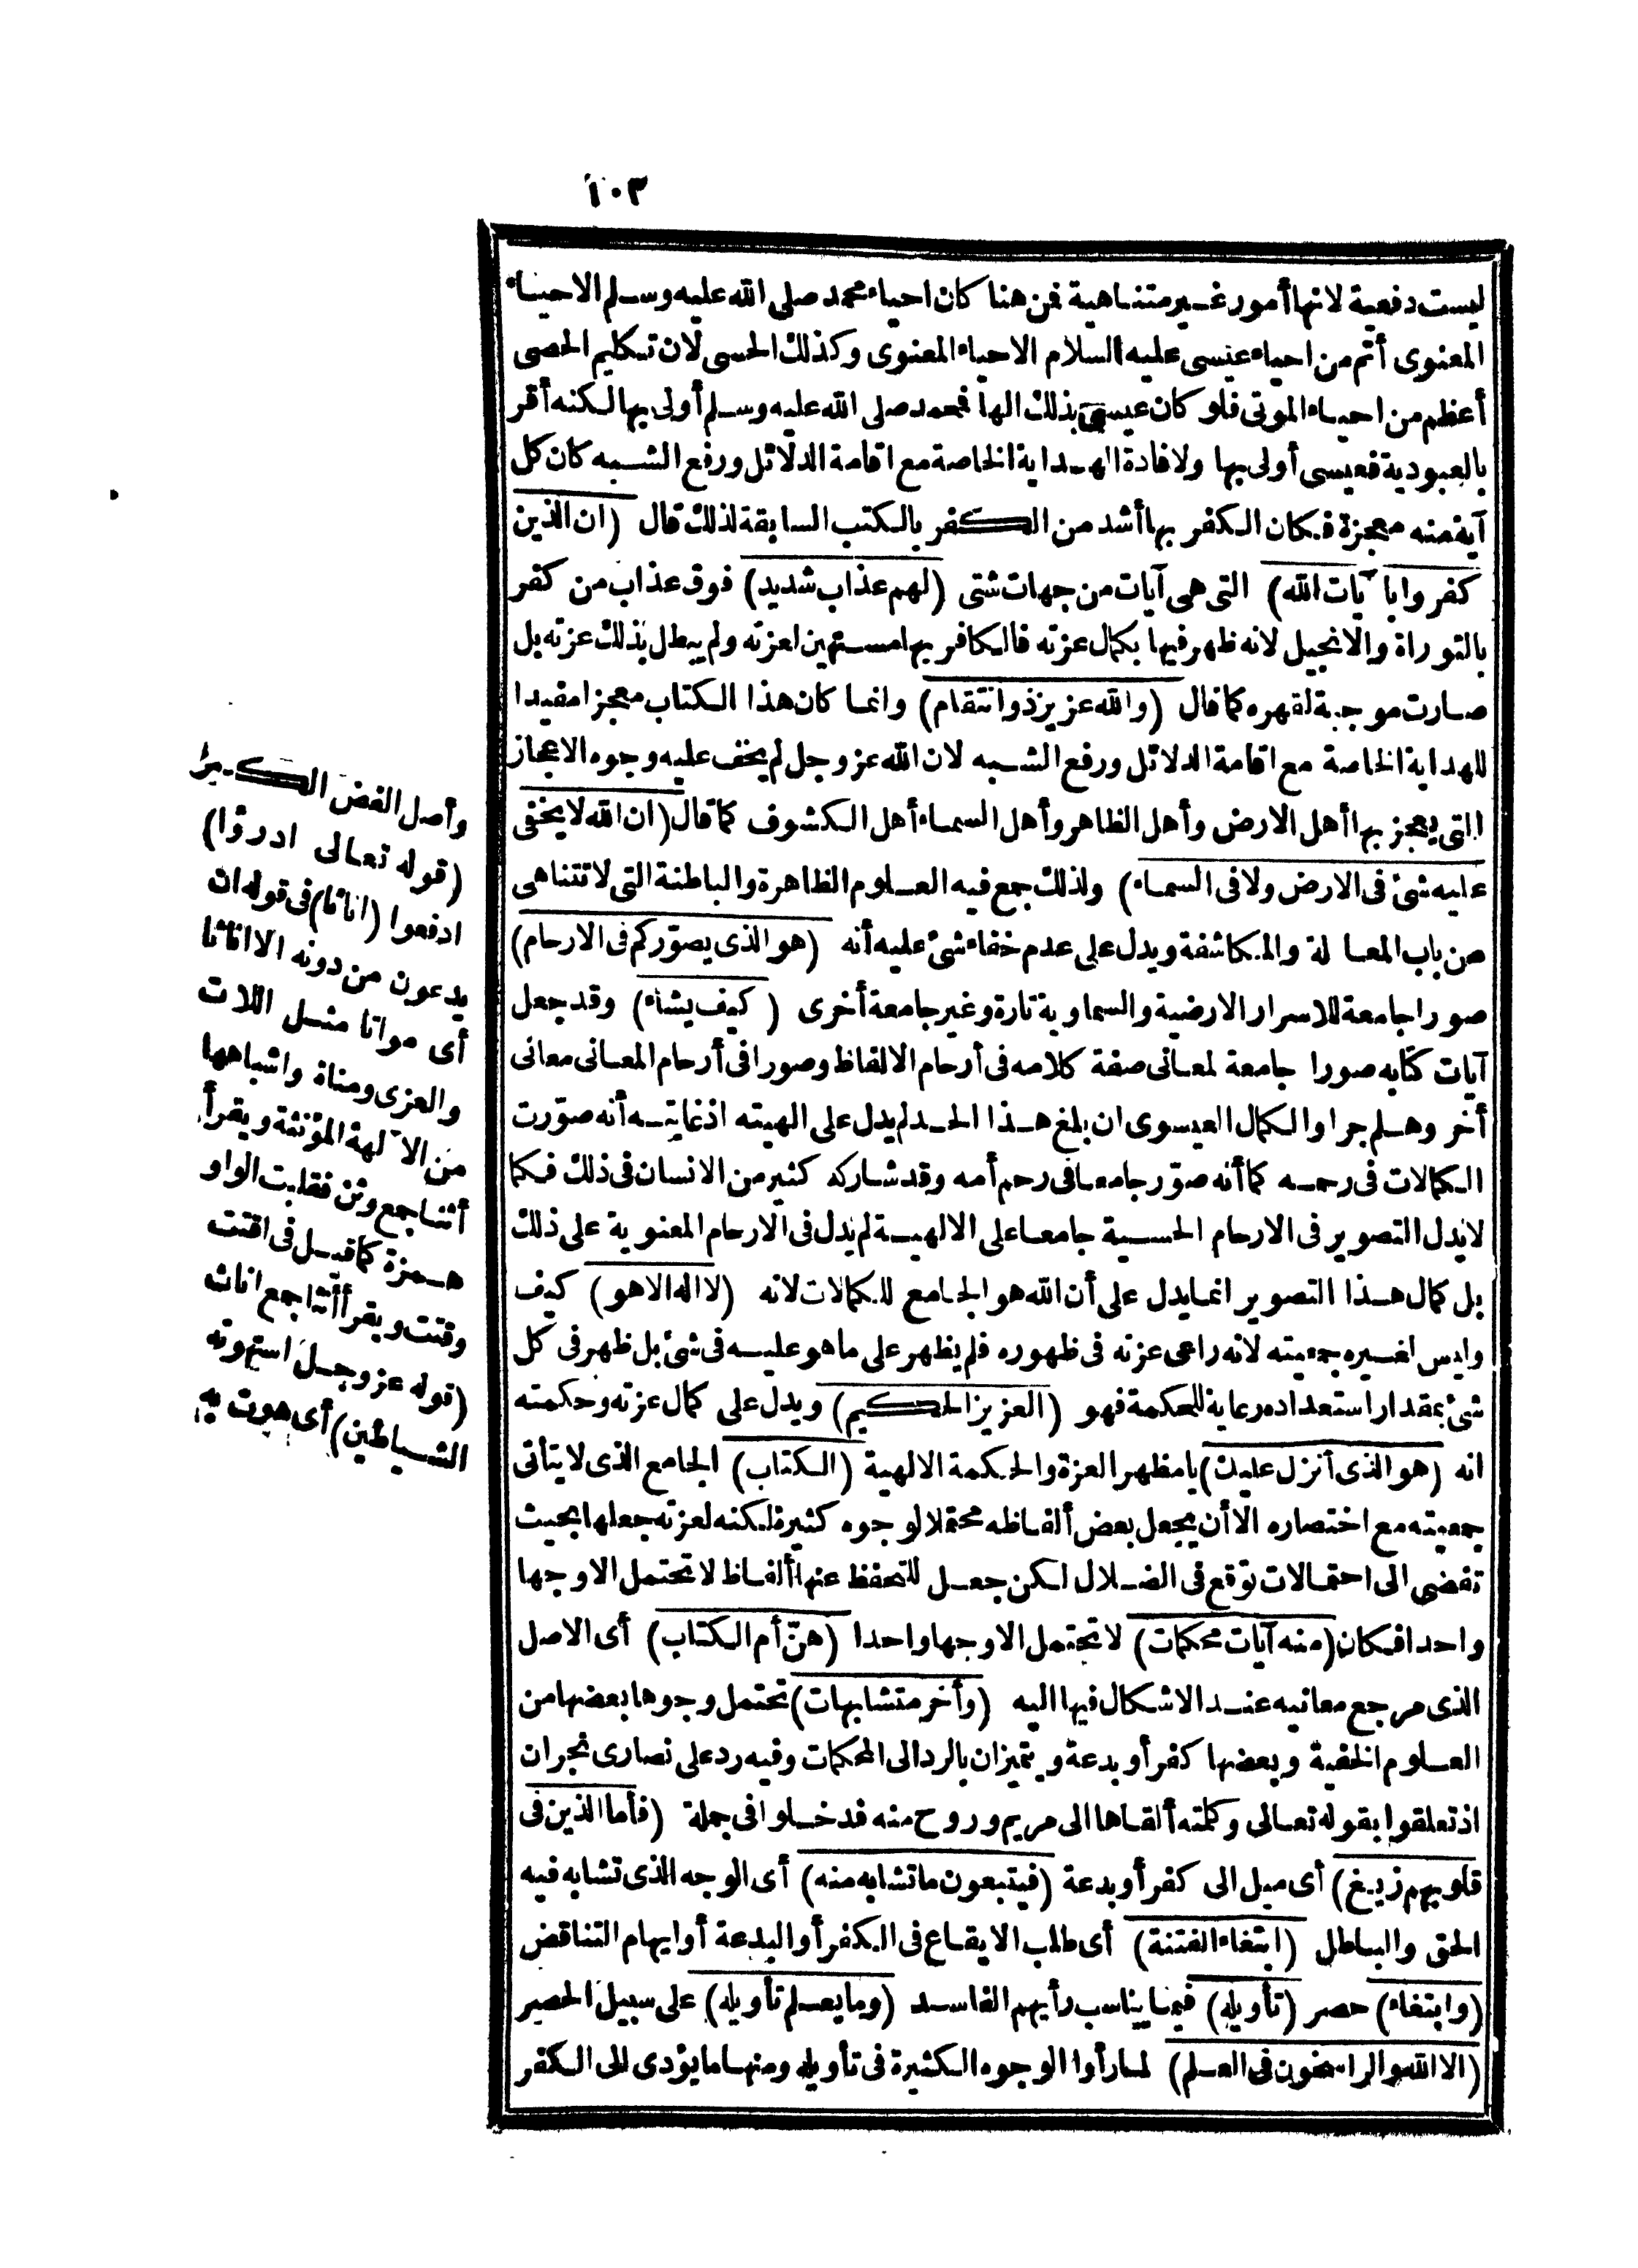 ١٠٣
ليست دفعية لانها أمور غير متناهية فمن هنا كان احياء محمد صلى الله عليه وسلم الاحياء
المعنوى أتم من احياء عيسى عليه السلام الاحياء المعنوى وكذلك الحسى لان تكليم الحصى
أعظم من احياء الموتى فلو كان عيسى بذلك الها فمحمد صلى الله عليه وسلم أولى بها لكنه أقر
بالعبودية فعيسى أولى بها ولافادة الهداية الخاصة مع اقامة الدلائل ورفع الشبه كان كل
آية منه معجزة فكان الكفر بها أشد من الكفر بالكتب السابقة لذلك قال (ان الذين
كفروا بآيات الله) التى هى آيات من جهات شتى (لهم عذاب شديد) فوق عذاب من كفر
بالتوراة والانجيل لانه ظهر فيها بكمال عزته فالكافر بها مستهين لعزته ولم يبطل بذلك عزته بل
صارت موجبة لقهره كما قال (والله عزيز ذو انتقام) وانما كان هذا الكتاب معجزا مفيدا
للهداية الخاصة مع اقامة الدلائل ورفع الشبه لان الله عز وجل لم يخف عليه وجوه الاعجاز
التى يعجز بها أهل الارض وأهل الظاهر وأهل السماء أهل الكشوف كما قال (ان الله لا يخفى
عليه شئ فى الارض ولا فى السماء) ولذلك جمع فيه العلوم الظاهرة والباطنة التى لا تتناهى
من باب المعاملة والمكاشفة ويدل على عدم خفاء شئ عليه أنه (هو الذى يصوّركم فى الارحام)
صورا جامعة للاسرار الارضية والسماوية تارة وغير جامعة أخرى (كيف يشاء) وقد جعل
آيات كتابه صورا جامعة لمعانى صفة كلامه فى أرحام الالفاظ وصورا فى أرحام المعانى معانى
أخر وهلم جرا والكمال العيسوى ان بلغ هذا الحد لم يدل على الهيته اذ غايته أنه صوّرت
الكمالات فى رحمه كما أنه صوّر جامعا فى رحم أمه وقد شاركه كثير من الانسان فى ذلك فكما
لا يدل التصوير فى الارحام الحسية جامعا على الالهية لم يدل فى الارحام المعنوية على ذلك
بل كمال هذا التصوير انما يدل على أن الله هو الجامع للكمالات لانه (لا اله الا هو) كيف
وليس لغيره جمعيته لانه راعى عزته فى ظهوره فلم يظهر على ما هو عليه فى شئ بل ظهر فى كل
شئ بمقدار استعداده رعاية للحكمة فهو (العزيز الحكيم) ويدل على كمال عزته وحكمته
انه (هو الذى أنزل عليك) يا مظهر العزة والحكمة الالهية (الكتاب) الجامع الذى لا يتأتى
جمعيته مع اختصاره الا أن يجعل بعض ألفاظه محتملا لوجوه كثيرة لكنه لعزته جعلها بحيث
تفضى الى احتمالات توقع فى الضلال لكن جعل للتحفظ عنها ألفاظا لا تحتمل الا وجها
واحدا فكان (منه آيات محكمات) لا تحتمل الا وجها واحدا (هنّ أم الكتاب) أى الاصل
الذى مرجع معانيه عند الاشكال فيها اليه (وأخر متشابهات) تحتمل وجوها بعضها من
العلوم الخفية وبعضها كفر أو بدعة ويتميزان بالرد الى المحكمات وفيه رد على نصارى نجران
اذ تعلقوا بقوله تعالى وكلمته ألقاها الى مريم وروح منه قد دخلوا فى جملة (فأما الذين فى
قلوبهم زيغ) أى ميل الى كفر أو بدعة (فيتبعون ما تشابه منه) أى الوجه الذى تشابه فيه
الحق والباطل (ابتغاء الفتنة) أى طلب الايقاع فى الكفر أو البدعة أو ايهام التناقض
(وابتغاء) حصر (تأويله) فيما يناسب رأيهم الفاسد (وما يعلم تأويله) على سبيل الحصر
(الا الله والراسخون فى العلم) لما رأوا الوجوه الكثيرة فى تأويله ومنها ما يؤدى الى الكفر
وأصل الغض الكسر
(قوله تعالى ادرؤا)
ادفعوا (اناثا) فى قوله ان
يدعون من دونه الا اناثا
أى مواتا مثل اللات
والعزى ومناة واشباهها
من الآلهة المؤنثة ويقرأ
أثنا جمع وثن فقلبت الواو
همزة كما قيل فى اقتت
وقتت ويقرأ أنثا جمع اناث
(قوله عز وجل استهوته
الشياطين) أى هوت به